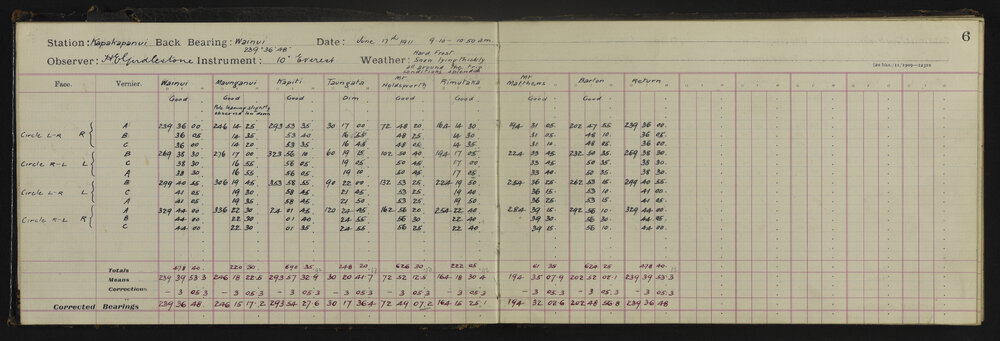 6
Station: Kapakapanui Back Bearing: Wainui Date: June 17th 1911 9-10 - 10.50 a.m.
239° 36' 48"
Observer: H E Girdlestone Instrument: 10" Everest Weather: Hard Frost
Snow lying thickly
all around the trig
conditions splendid
Face. Vernier. Wainui Maunganui Kapiti Taungata Mt Holdsworth Rimutaka Mt Matthews Barton Return
Good Good Good Dim Good Good Good Good
Pole leaning slightly
observed low down
Circle L-R R A 239 36 00 246 14 25 293 53 35 30 17 00 72 48 20 164 14 30 194 31 05 202 47 55 239 36 00
B 36 05 14 35 53 40 16 55 48 25 14 30 31 05 48 10 36 05
C 36 00 14 20 53 35 16 45 48 05 14 35 31 10 48 05 36 00
Circle R-L L B 269 38 30 276 17 00 323 56 10 60 19 15 102 50 40 194 17 05 224 33 45 232 50 35 269 38 30
C 38 30 16 55 56 05 19 05 50 45 17 00 33 45 50 35 38 30
A 38 30 16 55 56 05 19 10 50 45 17 05 33 40 50 35 38 30
Circle L-R L B 299 40 55 306 19 45 353 58 55 90 22 00 132 53 25 224 19 50 254 36 25 262 53 15 299 40 55
C 41 05 19 30 58 45 21 45 53 25 19 40 36 25 53 10 41 05
A 41 05 19 35 58 45 21 50 53 25 19 50 36 25 53 10 41 05
Circle R-L R A 329 44 00 336 22 30 24 01 45 120 24 45 162 56 20 254 22 40 284 39 15 292 56 10 329 44 00
B 44 00 22 30 01 40 24 55 56 30 22 40 39 10 56 30 44 05
C 44 00 22 30 01 35 24 55 56 25 22 40 39 15 56 10 44 00
Totals 478 40 220 30 690 35 248 20 626 30 222 05 61 35 624 25 478 40
Means 239 39 53.3 246 18 22.5 293 57 32.9 30 20 41.7 72 52 12.5 164 18 30.4 194 35 07.9 202 52 02.1 239 39 53.3
Corrections - 3 05.3 - 3 05.3 - 3 05.3 - 3 05.3 - 3 05.3 - 3 05.3 - 3 05.3 - 3 05.3 - 3 05.3
Corrected Bearings 239 36 48. 246 15 17.2 293 54 27.6 30 17 36.4 72 49 07.2 164 15 25.1 194 32 02.6 202 48 56.8 239 36 48